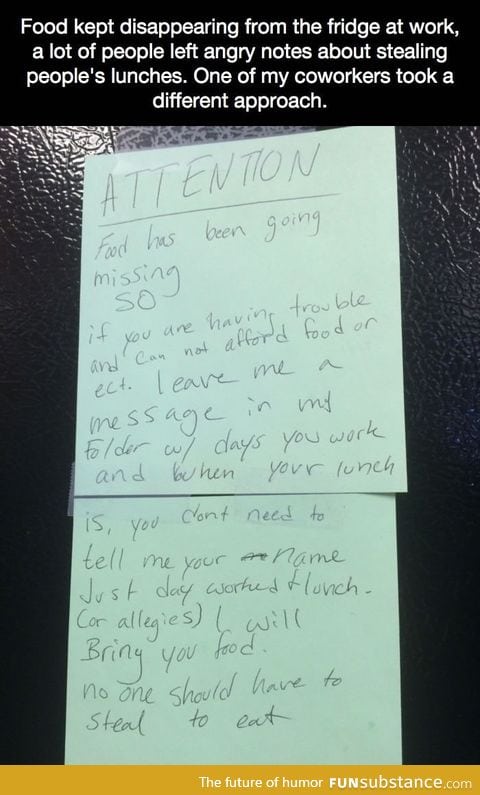 Food kept disappearing from the fridge at work,
a lot of people left angry notes about stealing
people's lunches. One of my coworkers took a
different approach.
ATTENTION
Food has been going
missing
SO
if you are having trouble
and can not afford food or
ect. leave me a
message in my
folder w/ days you work
and when your lunch
is, you dont need to
tell me your name
Just day worked + lunch.
(or allegies) I will
Bring you food.
no one should have to
steal to eat
The future of humor FUNsubstance.com